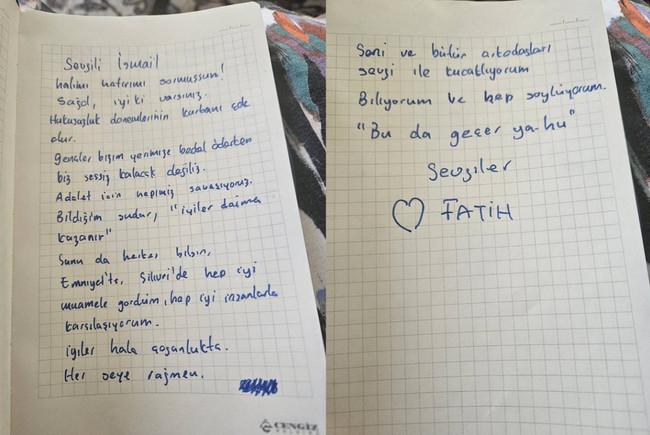 Sevgili İsmail
halimi hatırımı sormuşsun!
Sağol, iyi ki varsınız.
Hukusuzluk dönemlerinin kurbanı çok
olur.
Gençler bizim yerimize bedel öderken
biz sessiz kalacak değiliz.
Adalet için hepimiz savaşıyoruz.
Bildiğim şudur, "iyiler daima
kazanır"
Şunu da herkes bilsin,
Emniyet'te, Silivri'de hep iyi
muamele gördüm, hep iyi insanlarla
karşılaşıyorum.
iyiler hala çoğunlukta.
Her şeye rağmen.
CENGİZ
HOLDİNG
Seni ve bütün arkadaşları
sevgi ile kucaklıyorum
Biliyorum ve hep söylüyorum.
"Bu da geçer ya-hu"
Sevgiler
FATİH